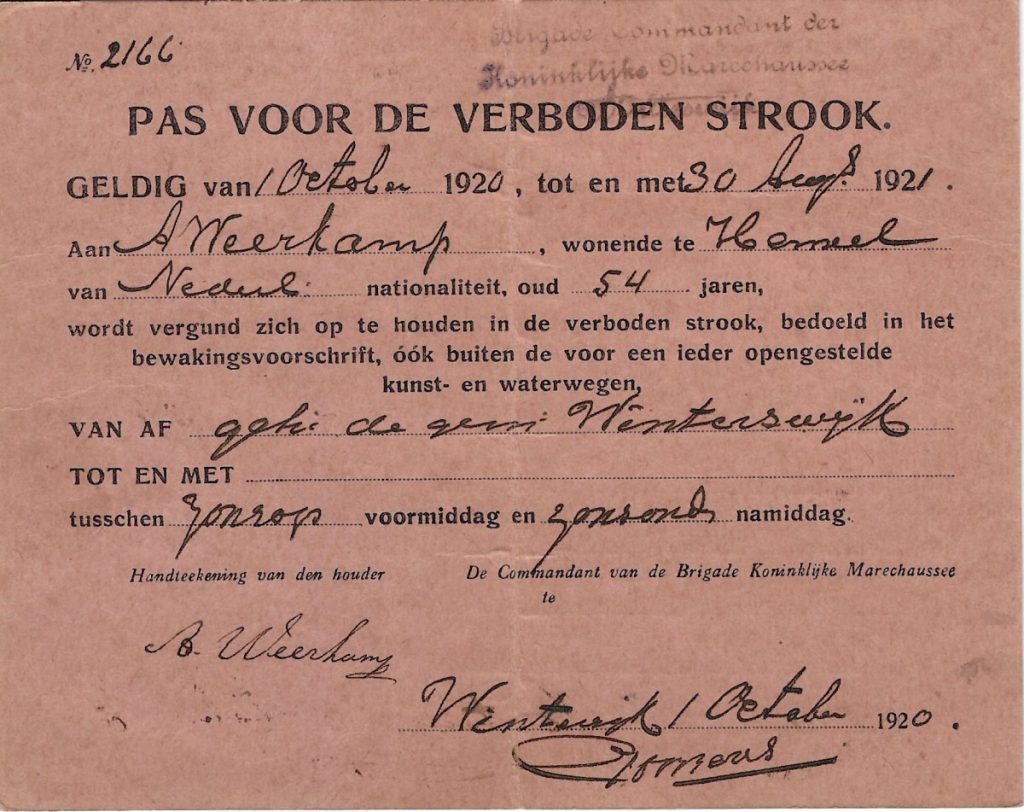 No. 2166
Brigade Commandant der
Koninklijke Marechaussee
PAS VOOR DE VERBODEN STROOK.
GELDIG van 1 October 1920, tot en met 30 Augs. 1921.
Aan A Weerkamp, wonende te
van Nederl. nationaliteit, oud 54 jaren,
wordt vergund zich op te houden in de verboden strook, bedoeld in het
bewakingsvoorschrift, óók buiten de voor een ieder opengestelde
kunst- en waterwegen,
VAN AF gehe de gem: Winterswijk
TOT EN MET
tusschen zonsop voormiddag en zonsond namiddag.
Handteekening van den houder
De Commandant van de Brigade Koninklijke Marechaussee
te
A. Weerkamp
Wintswijk 1 October 1920.